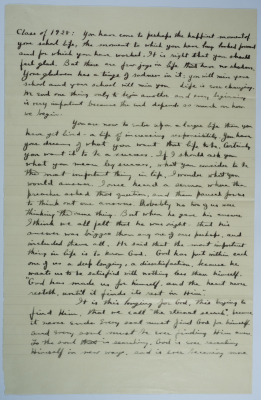 Class of 1930: You have come to perhaps the happiest moment of
your school life, the moment to which you have long looked forward
and for which you have worked. It is right that you should
feel glad. But there are few joys in life that have no shadow.
Your gladness has a tinge of sadness in it: you will miss your
school and your school will miss you. Life is ever changing.
We end one thing only to begin another and every beginning
is very important because the end depends so much on how
we begin.
You are now to enter upon a larger life than you
have yet lived - a life of increasing responsibility. You have
your dreams of what you want this life to be. Certainly
you want it to be a success. If I should ask you
what you mean by success, what you consider to be
the most important thing in life, I wonder what you
would answer. I once heard a sermon where the
preacher asked this question, and then paused for us
to think out our answers. Probably no two of us were
thinking the same thing. But when he gave his answer
I think we all felt that he was right: that his
answer was bigger than any of ours perhaps, and
included them all. He said that the most important
thing in life is to know God. God has put within each
one of us a deep longing, a dissatisfaction, because he
wants us to be satisfied with nothing less than himself.
"God has made us for himself, and the heart never
resteth, until it finds its rest in Him."
It is this longing for God, this trying to
find Him, that we call "the eternal search", because
it never ends. Every soul must find God for himself
and every soul must be ever finding Him even
as the soul is searching, God is ever revealing
Himself in new ways, and is ever becoming more